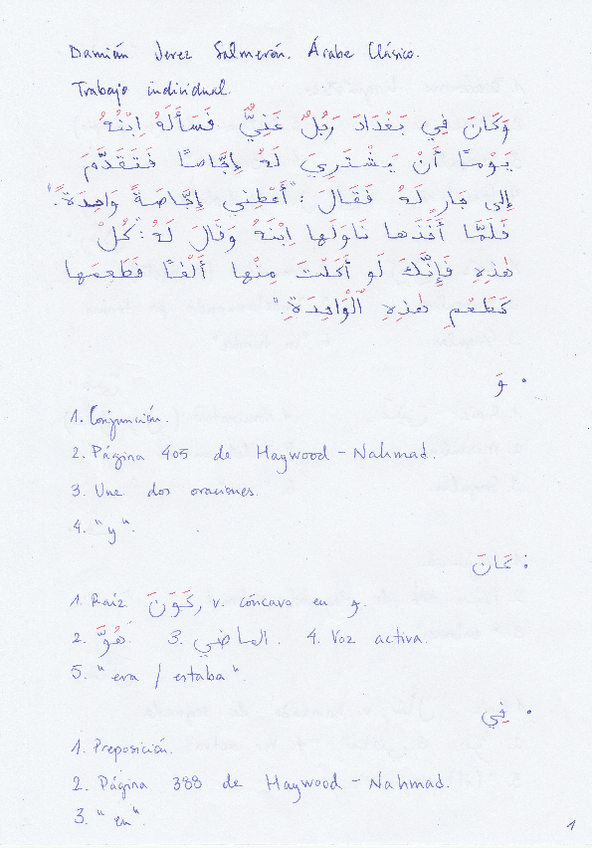 Damián Jerez Salmerón. Árabe Clásico.
Trabajo individual.
وَكَانَ فِي بَغْدَادَ رَجُلٌ غَنِيٌّ فَسَأَلَهُ اِبْنُهُ
يَوْمًا أَنْ يَشْتَرِيَ لَهُ إِجَّاصًا فَتَقَدَّمَ
إِلى جَارٍ لَهُ فَقَالَ: "أَعْطِنِي إِجَّاصَةً وَاحِدَةً."
فَلَمَّا أَخَذَها نَاوَلَها اِبْنَهُ وَقَالَ لَهُ: "كُلْ
هٰذِهِ فَإِنَّكَ لَو أَكَلْتَ مِنْها أَلْفًا فَطَعِمَها
كَطَعْمِ هٰذِهِ الْوَاحِدَةِ."
• وَ
1. Conjunción.
2. Página 405 de Haywood-Nahmad.
3. Une dos oraciones.
4. "y".
• كَانَ
1. Raíz كَوَنَ, v. cóncavo en و.
2. هُوَّ. 3. الماضي. 4. Voz activa.
5. "era / estaba".
• فِي
1. Preposición.
2. Página 388 de Haywood-Nahmad.
3. "en".
1